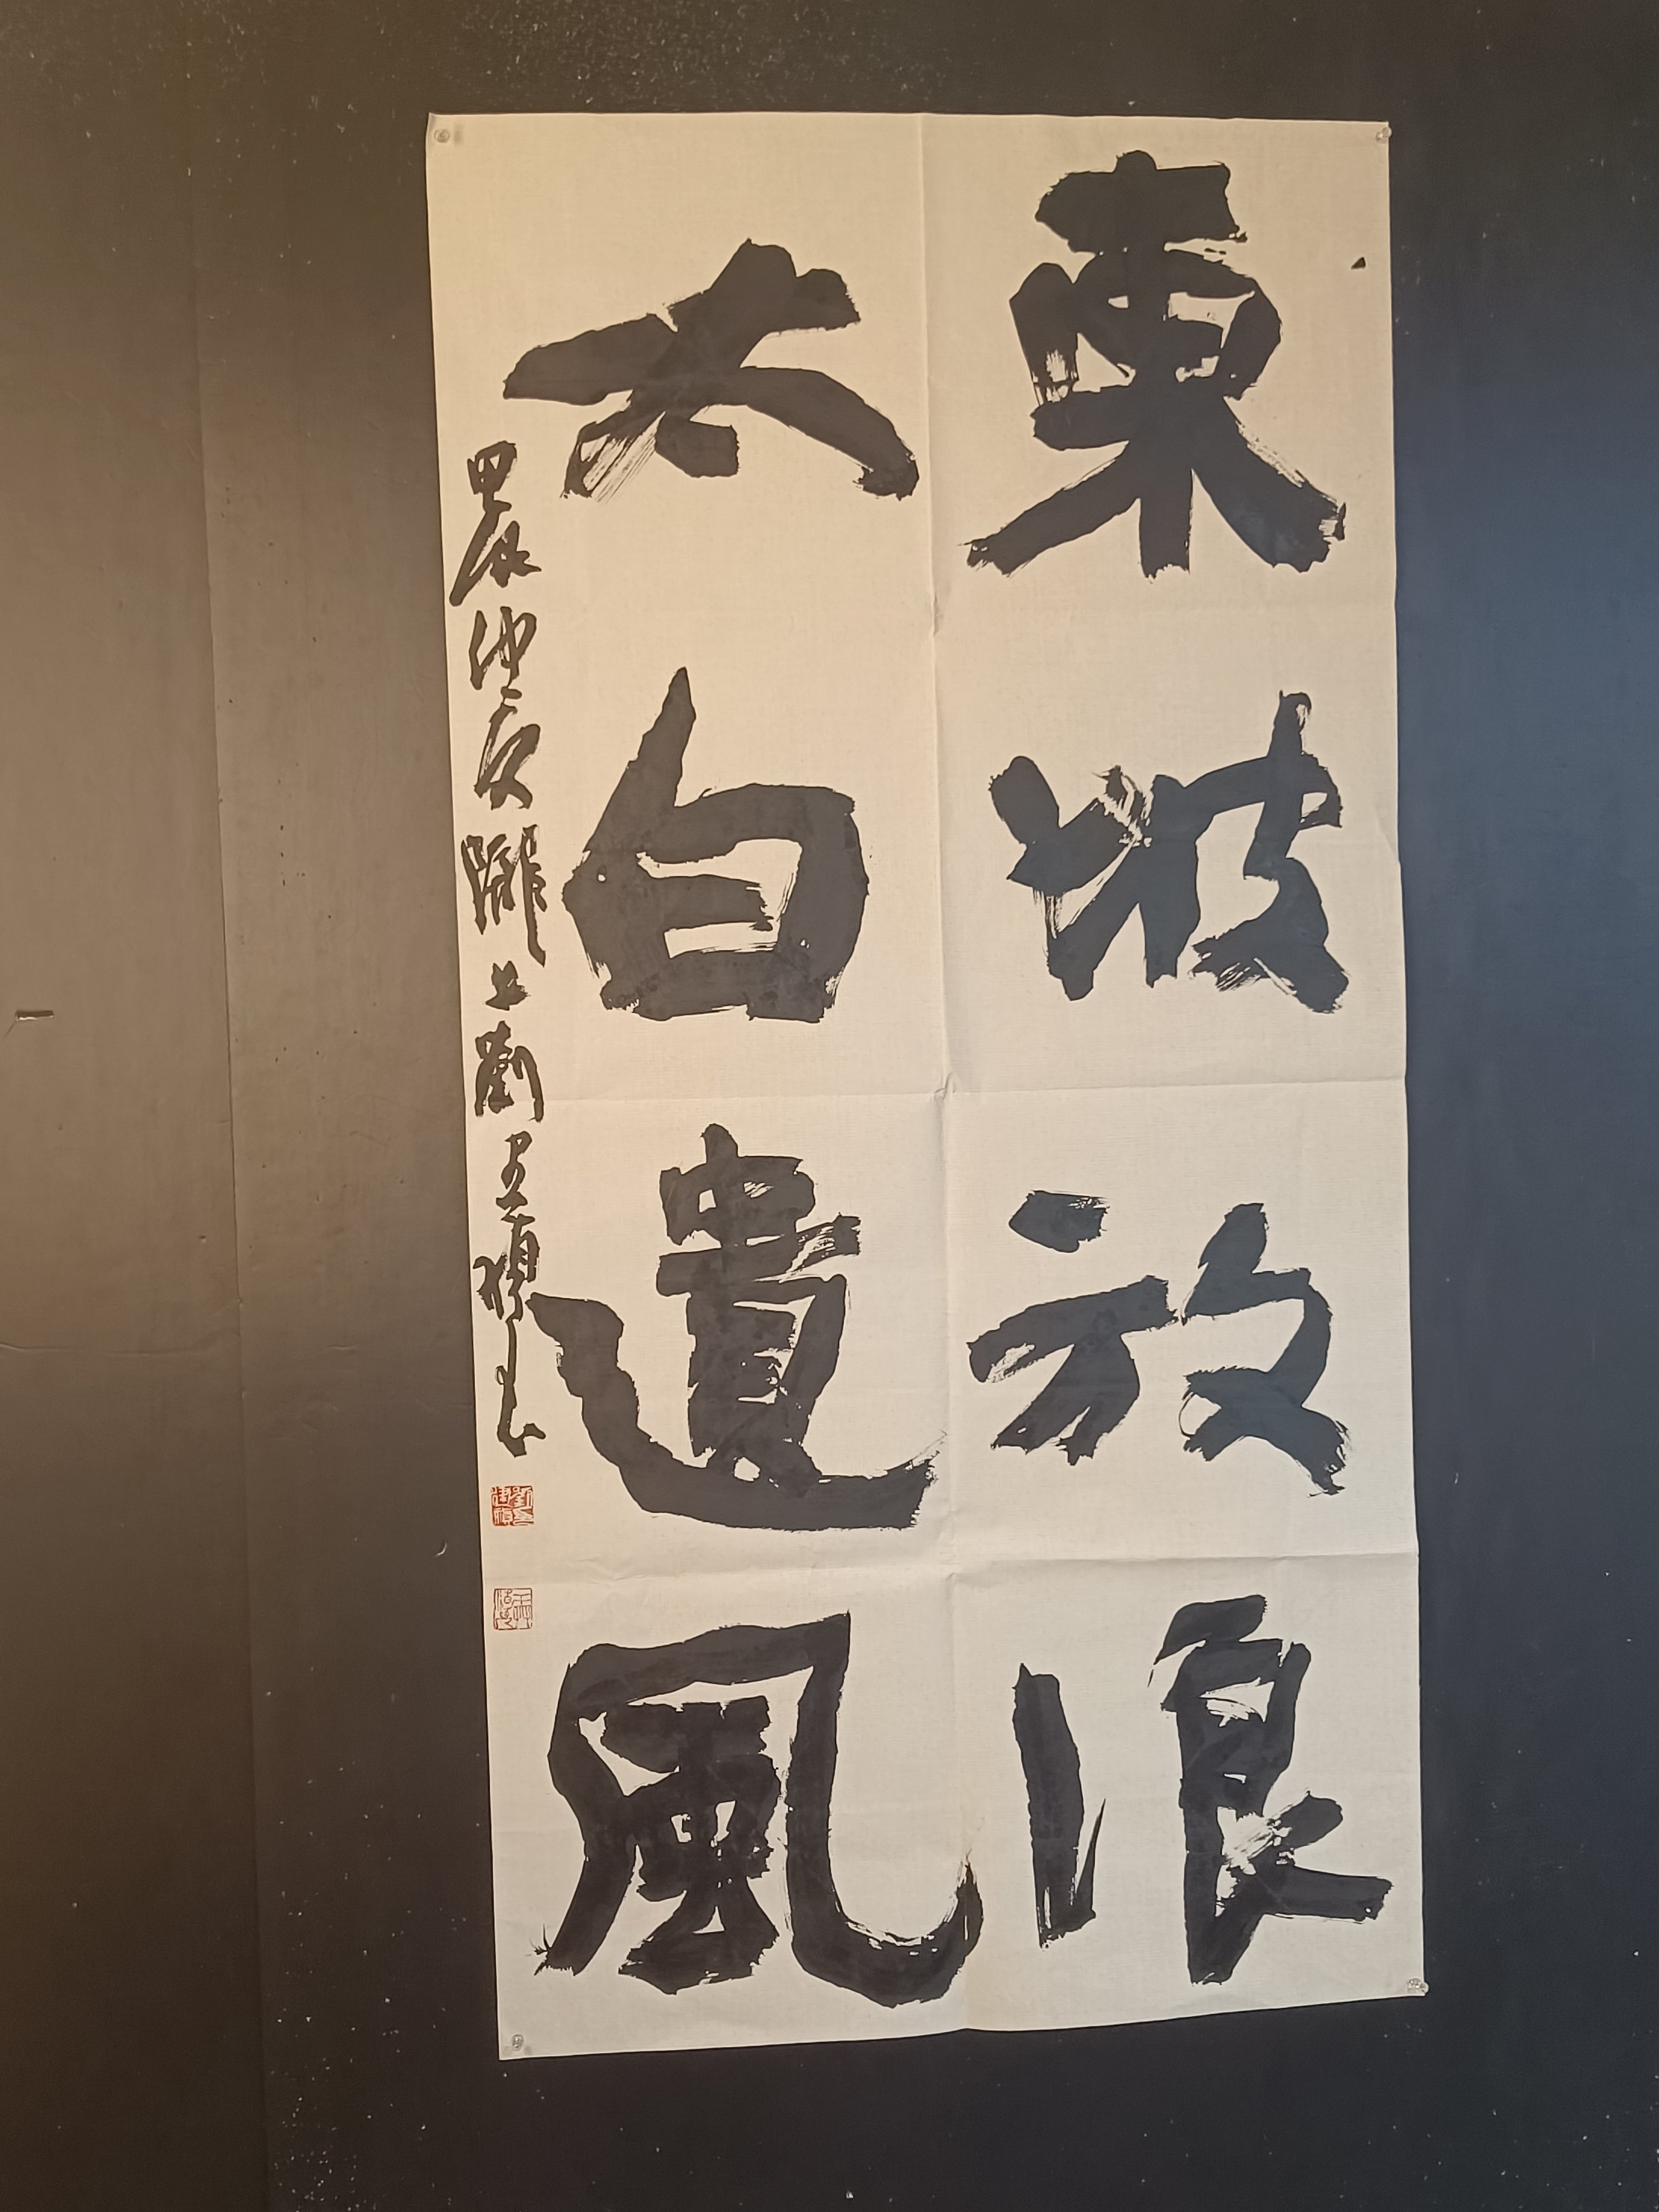 東坡放浪
太白遺風
甲辰仲夏隴上劉